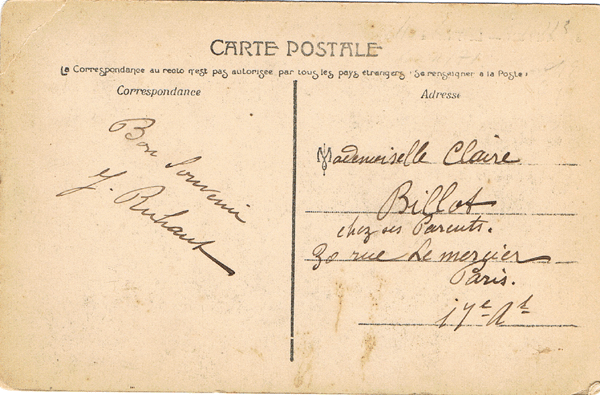 CARTE POSTALE
La Correspondance au recto n'est pas autorisée par tous les pays étrangers (Se renseigner à la Poste)
Correspondance
Adresse
Bon Souvenir
Mademoiselle Claire
Billot
chez ses Parents.
30 rue Lemercier
Paris.
17e At